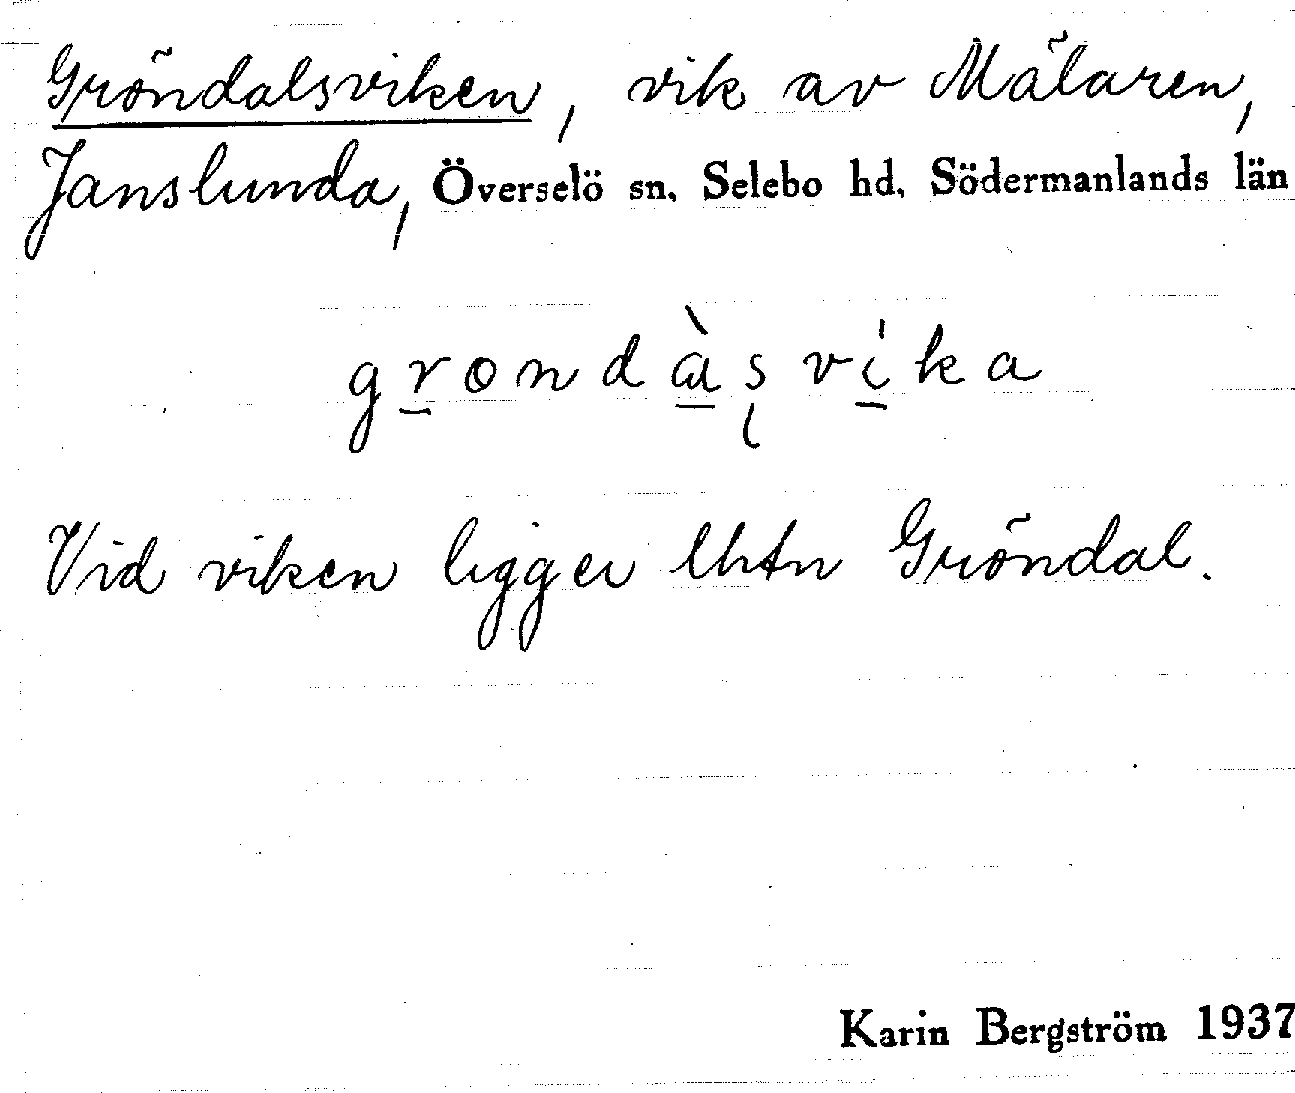 Gröndalsviken, vik av Mälaren,
Janslunda, Överselö sn, Selebo hd, Södermanlands län
gr̲ɵndɑ̲̀ʂvi̲̍ka
Vid viken ligger lhtn Gröndal.
Karin Bergström 1937